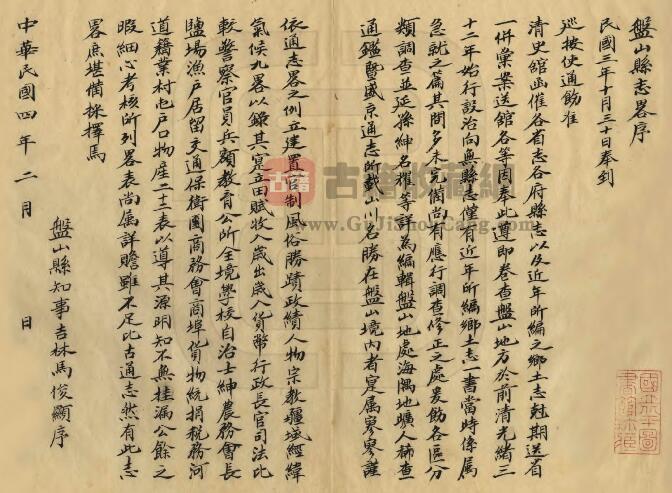 盤山縣志畧序
民國三年十月三十日奉到
巡按使通飭准
清史舘函催各省志各府縣志以及近年所編之鄉土志尅期送省
一併彙案送舘各等因奉此遵即卷查盤山地方於前清光緒三
十二年始行設治向無縣志僅有近年所編鄉土志一書當時係屬
急就之篇其間多未完備尚有應行調查修正之處爰飭各區分
類調查並延孫紳名耀等詳為編輯盤山地處海隅地曠人稀查
通鑑暨盛京通志所載山川名勝在盤山境內者寔属寥寥謹
依通志畧之例立建置官制風俗勝蹟政績人物宗教疆域經緯
氣候九畧以錄其寔立田賦收入歲出歲入貨幣行政長官司法比
較警察官員兵額教育公所全境學校自治士紳農務會長
鹽場漁戶居留交通保衛團商務會商埠貨物統捐税務河
道籍業村屯戶口物産二十三表以導其源明知不無掛漏公餘之
暇細心考核所列畧表尚属詳贍雖不足比古通志然有此志
畧庶堪備採擇焉
盤山縣知事吉林馬俊顯序
中華民國四年二月 日
古籍
古籍收藏網
www.GuJiShouCang.com